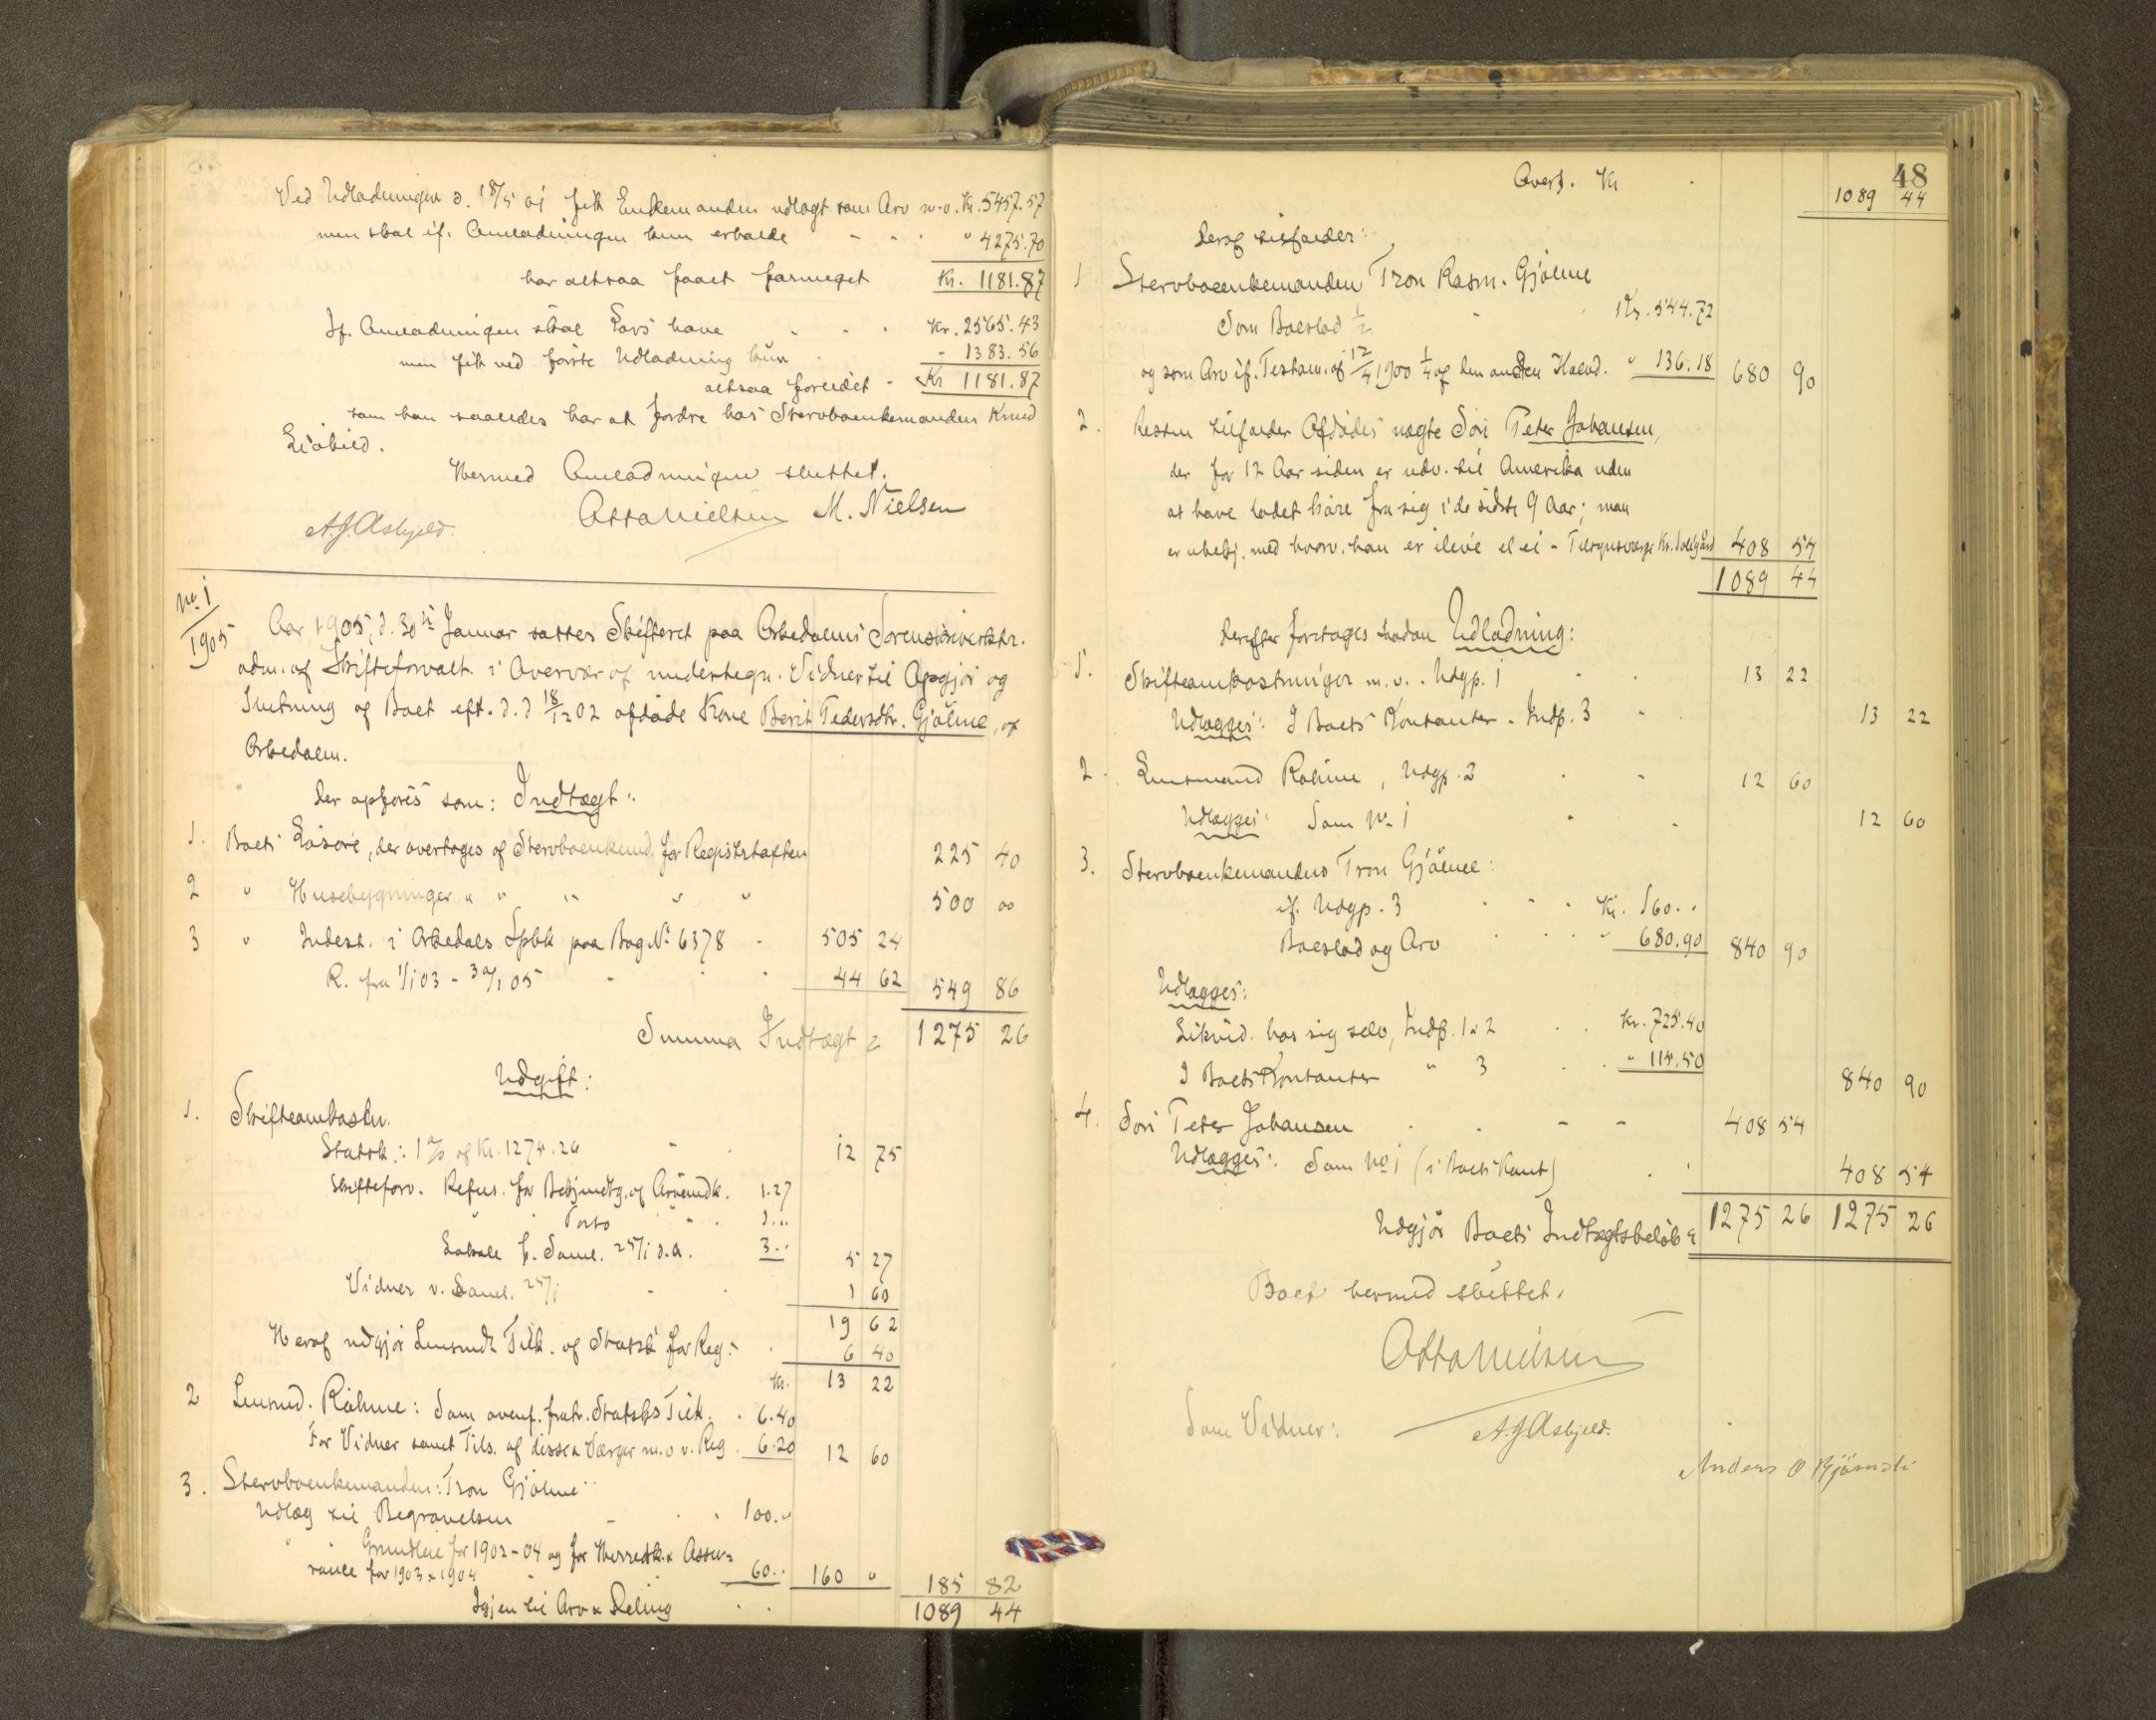 Ved Udlodningen d. 18/5 01 fik Enkemanden udlagt som Arv m.v. Kr. 5457.57
men skal if. Omlodningen kun erholde - - - " 4275.70
har altsaa faaet formeget Kr. 1181.87
If. Omlodningen skal Lars have - - - Kr. 2565.43
men fik ved første Udlodning kun - 1383.56
altsaa forlidet - Kr 1181.87
som han saaledes har at fordre hos Stervboenkemanden Knud
Hermed Omlodningen sluttet.
Otto Nielsen M. Nielsen
A.J. Asbjeld.
No. 1
1905
Aar 1905, d. 30te Januar sattes Skifteret paa Orkedalens Sorenskriverktr.
adm. af Skifteforvalt. i Overvær af undertegn. Vidner til Opgjør og
Slutning af Boet eft. d. d 18/12 02 afdøde Kone Berit Pedersdtr. Gjølme, af
Orkedalen.
Der opføres som: Indtægt:
1. Boets Løsøre, der overtages af Stervboenkemd. for Registrtaxten 225 40
2 " Husebygninger " " " " " 500 00
3 " Indest. i Orkedals Spbk paa Bog No 6378 - 505 24
R. fra 1/1 03 - 30/1 05 - 44 62 549 86
Summa Indtægt 1275 26
Udgift:
1. Skifteomkostn.
Statsk.: 1 % af Kr. 1275.26 - 12 75
Skifteforv. Refus. for Bekjendtg. af Arveindk. 1.27
" Porto " - . 1..
Lokale f. Saml. 25/1 d.A. 3.. 5 27
Vidner v. Saml. 25/1 - 1 60
19 62
Heraf udgjør Lensmds Tilk. af Statsk. for Reg. - 6 40
Kr. 13 22
2 Lensmd. Røhme: Som ovenf. fratr. Statsks Tilk. . 6.40
For Vidner samt Tils. af disse & Værger m.v. v. Reg . 6.20 12 60
3. Stervboenkemanden: Tron Gjølme
Udlæg til Begravelsen - . . 100.-
" Grundleie for 1902-04 og for Herredsk. & Assu=
rance for 1903 & 1904 60.. 160 " 185 82
Igjen til Arv & Deling . . 1089 44
48
Overf. Kr . 1089 44
Deraf tilfalder:
1 Stervboenkemanden Tron Rasm. Gjølme
Som Boeslod 1/2 " Kr. 544.72
og som Arv if. Testam. af 12/4 1900 1/4 af den anden Halvd. " 136.18 680 90
2. Resten tilfalder Afdødes uægte Søn Peter Johansen,
der for 12 Aar siden er udv. til Amerika uden
at have ladet høre fra sig i de sidste 9 Aar; man
er ubekj. med hvorv. han er ilive el ei - Tilsynsværge Kr. 408 54
1089 44
Derefter foretoges saadan Udlodning:
1. Skifteomkostninger m.v. . Udgp. 1 . . 13 22
Udlægges: I Boets Kontanter - Indp. 3 - 13 22
2. Lensmand Røhme, Udgp. 2 . - 12 60
Udlægges: Som No 1 . - 12 60
3. Stervboenkemanden Tron Gjølme:
if. Udgp. 3 - - . Kr. 160..
Boeslod og Arv . . . " 680.90 840 90
Udlægges:
Likvid. hos sig selv, Indp. 1 & 2 . . Kr. 725.40
I Boets Kontanter " 3 . . " 115.50 840 90
4. Søn Peter Johansen . . - - 408 54
Udlægges: Som No 1 (i Boets Kont) . . 408 54
Udgjør Boets Indtægtsbeløb 1275 26 1275 26
Boet hermed sluttet.
Otto Nielsen
Som Vidner: A.J. Asbjeld.
Anders O